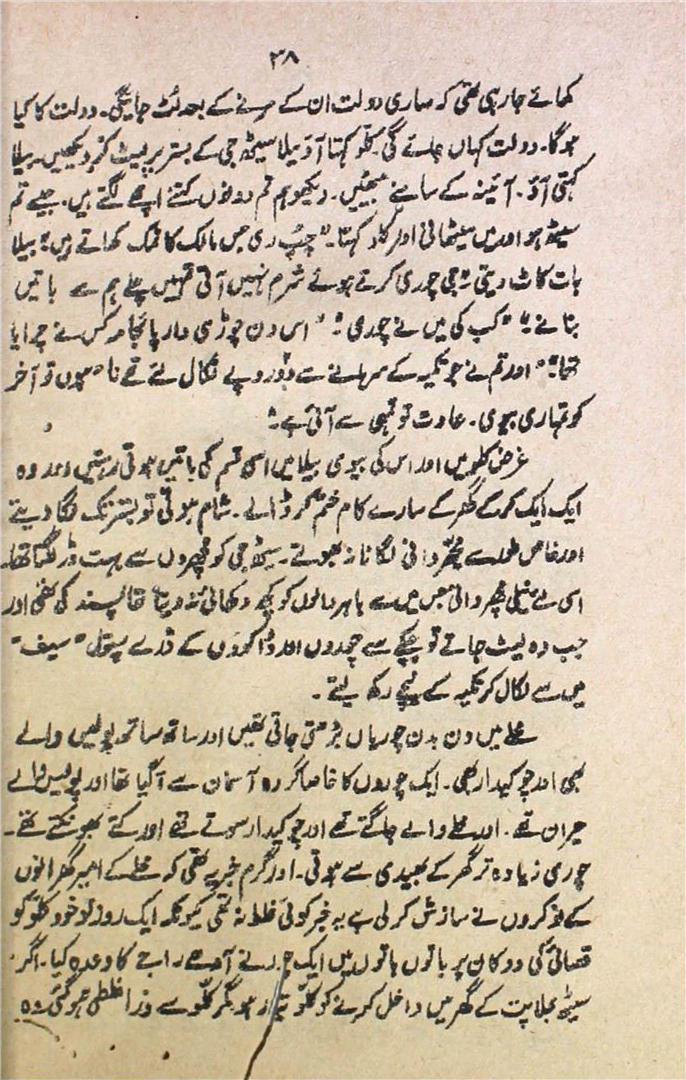 ۳۸
کھائے جا رہی تھی کہ ساری دولت ان کے مرنے کے بعد لٹ جائیگی۔ دولت کا کیا
ہوگا۔ دولت کہاں جائے گی۔ کلّو کہتا آؤ بیلا سیٹھ جی کے بستر پر لیٹ کر دیکھیں۔ بیلا
کہتی آؤ۔ آئینہ کے سامنے بیٹھیں۔ دیکھو ہم تم دونوں کتنے اچھے لگتے ہیں۔ جیسے تم
سیٹھ ہو اور میں سیٹھانی اور کلّو کہتا۔ "چپ ری جس مالک کا نمک کھاتے ہیں" بیلا
بات کاٹ دیتی "جی چوری کرتے ہوئے شرم نہیں آتی تمہیں چلے ہم سے باتیں
بنانے" "کب کی میں نے چوری" "اس دن چوڑی دار پائجامہ کس نے چرایا
تھا" "اور تم نے جو تکیہ کے سرہانے سے دو روپے نکال لئے تھے نا" "ہوں تو آخر
کو تمہاری بیوی۔ عادت تو تمہی سے آئی ہے"
غرض کلّو میں اور اس کی بیوی بیلا میں اسی قسم کی باتیں ہوتی رہتیں اور وہ
ایک ایک کر کے گھر کے سارے کام ختم کر ڈالتے۔ شام ہوتی تو بستر تک لگا دیتے
اور خاص طور سے مچھر دانی لگانا نہ بھولتے۔ سیٹھ جی کو مچھروں سے بہت ڈر لگتا تھا۔
اسی لئے نیلی مچھر دانی جس میں سے باہر والوں کو کچھ دکھائی نہ دیتا تھا پسند کی تھی اور
جب وہ لیٹ جاتے تو چپکے سے چوروں اور ڈاکوؤں کے ڈر سے پستول "سیف"
میں سے نکال کر تکیہ کے نیچے رکھ لیتے۔
محلے میں دن بدن چوریاں بڑھتی جاتی تھیں اور ساتھ ساتھ پولیس والے
بھی اور چوکیدار بھی۔ ایک چوروں کا خاصا گروہ آسمان سے آ گیا تھا اور پولیس والے
حیران تھے۔ اور محلے والے جاگتے تھے اور چوکیدار سوتے تھے اور کتے بھونکتے تھے۔
چوری زیادہ تر گھر کے بھیدی سے ہوتی۔ اور گرم خبر یہ تھی کہ محلے کے امیر گھرانوں
کے نوکروں نے سازش کر لی ہے یہ خبر کوئی غلط نہ تھی کیونکہ ایک روز تو خود کلّو کو
قصائی کی دوکان پر باتوں باتوں میں ایک چور نے آدھے راجے کا وعدہ کیا۔ اگر
سیٹھ بجلا پت کے گھر میں داخل کرنے کو کلّو تیار ہو مگر کلّو سے ذرا غلطی ہو گئی وہ